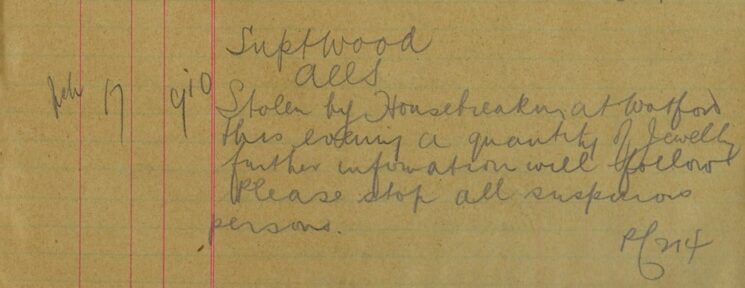 Supt Wood
Alls
Feb 17 9.10 Stolen by Housebreaking at Watford
this evening a quantity of Jewelly
further information will follow
Please stop all suspicious
persons.
PC 214